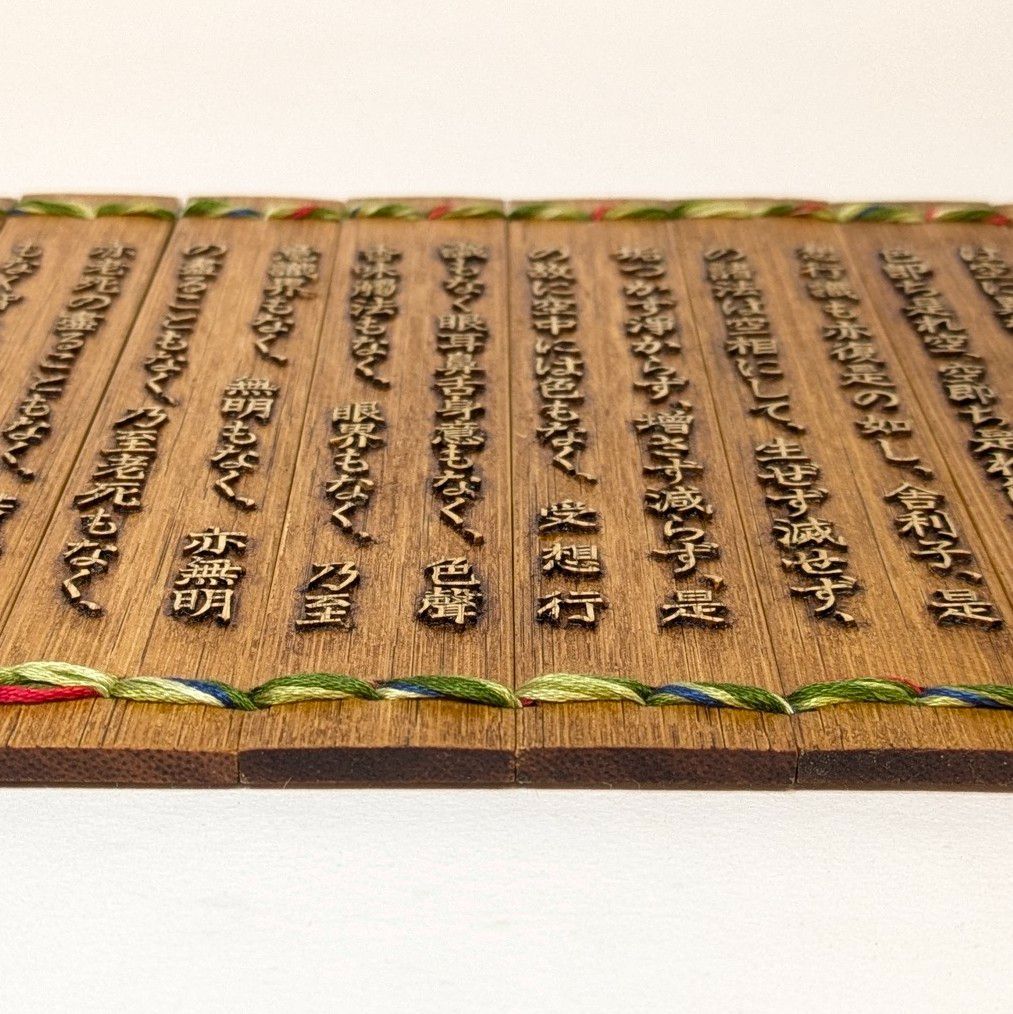 は空に
色即ち是れ空、空即ち是れ
想行識も亦復是の如し、舎利子、是
の諸法は空相にして、生ぜず滅せず、
垢つかず浄からず、増さず減らず、是
の故に空中には色もなく、受想行
識もなく眼耳鼻舌身意もなく、色聲
香味觸法もなく、眼界もなく、乃至
意識界もなく、無明もなく、亦無明
の盡ることもなく、乃至老死もなく、
亦老死の盡ることもなく、
もなく